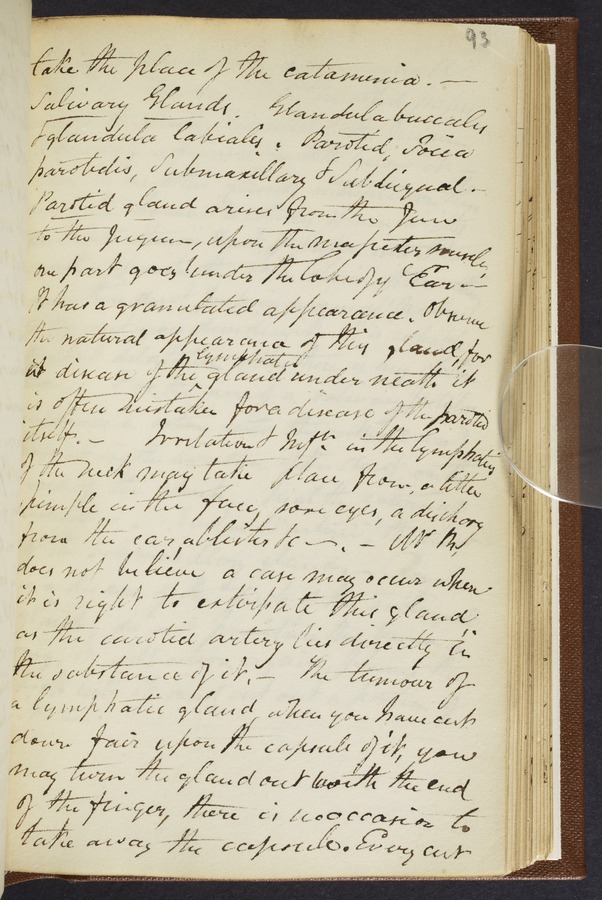 93
take the place of the catamenia. —
Salivary Glands. Glandula buccales
& glandula labiales. Parotid, Socia
parotidis, Submaxillary & Sublingual. —
Parotid gland arises from the Jaw
to the Jugum, upon the masseter muscle,
one part goes under the lobe of y Ear —
It has a granulated appearance. Observe
the natural appearance of this gland, for
disease of the lymphatic gland underneath it
is often mistaken for a disease of the parotid
itself. — Irritation & Infn. in the lymphatics
of the neck may take place from a little
pimple in the face, sore eyes, a discharge
from the ear a blister &c —. — Mr B.
does not believe a case may occur when
it is right to extirpate this gland
as the carotid artery lies directly in
the substance of it. — The tumour of
a lymphatic gland when you have cut
down fair upon the capsule of it, you
may turn the gland out with the end
of the finger, there is no occasion to
take away the capsule. Every cut